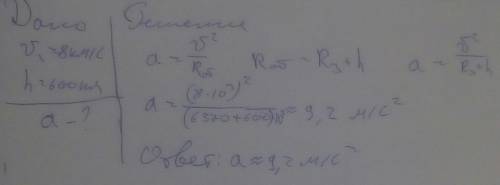 Дано Решение
v₁=8км/с
h=600км
a-?
a = v²/Rоб Rоб = Rз+h a = v²/Rз+h
a = (8·10³)²/(6370+600)·10³ ≈ 9,2 м/с²
Ответ: a≈9,2 м/с²